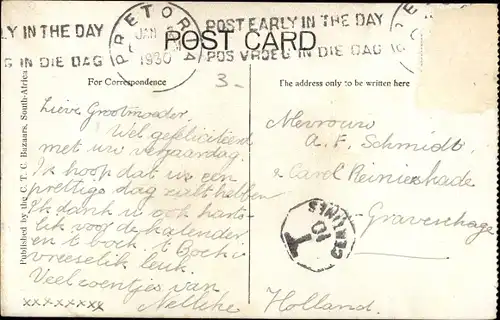 LY IN THE DAY
G IN DIE DAG
PRETORIA
JAN
1930
POST EARLY IN THE DAY
POS VROEG IN DIE DAG
POST CARD
For Correspondence
3-
The address only to be written here
Published by the C. T. C. Bazaars, South-Africa
Lieve Grootmoeder.
Wel gefeliciteerd
met uw verjaardag.
Ik hoop dat us een
prettige dag zult hebben
Ik dank u ook harte-
lik voor de kalender
en t boek. t Boek is
vreeselik leuk.
Veel zoentjes van
Nellike
xxxxxxxx
Mevrouw
A. F. Schmidt
Carel Reinierskade
Gravenhage
Holland.
T
10
CENTIMES